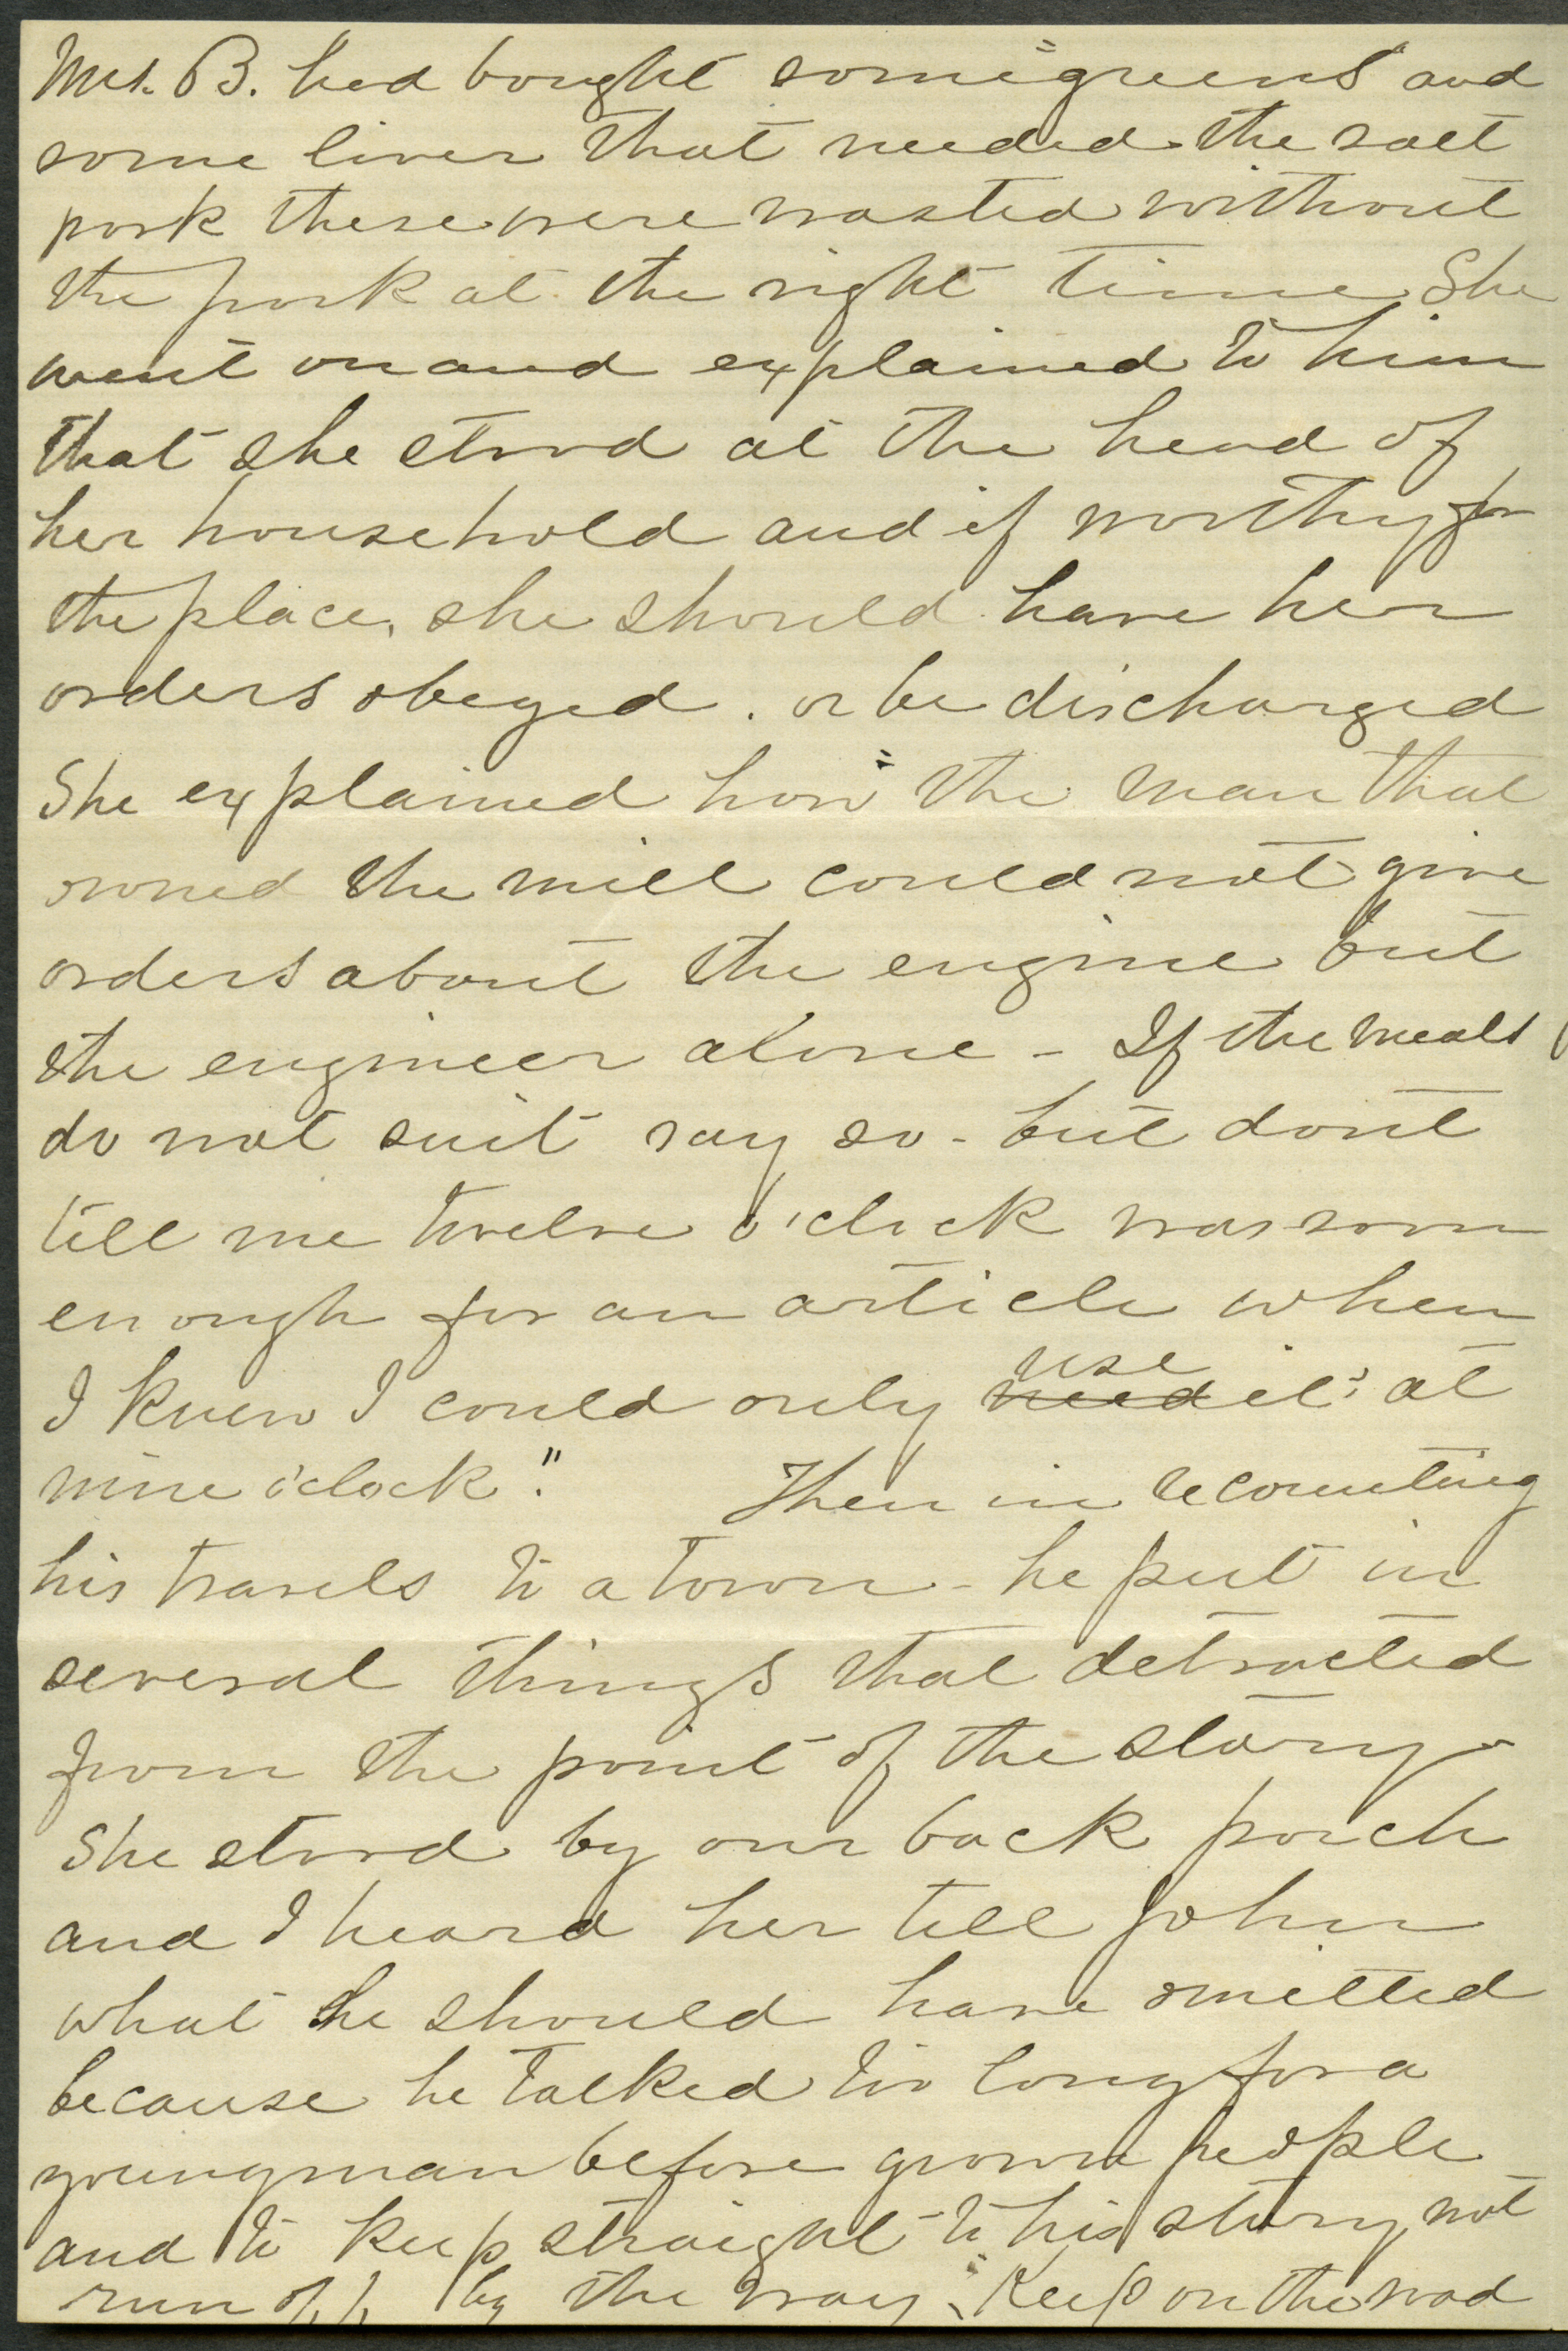 Mrs. B. had bought some greens and
some liver that needed the salt
pork these were wasted without
the pork at the right time. She
went on and explained to him
that she stood at the head of
her household and if worthy for
the place, she should have her
orders obeyed. or be discharged
She explained how the man that
owned the mill could not give
orders about the engine but
the engineer alone - If the meals
do not suit say so - but dont
tell me twelve o'clock was soon
enough for an article when
I knew I could only ~~need~~ use it at
nine o'clock." Then in recounting
his travels to a town - he put in
several things that detracted
from the point of the story -
She stood by our back porch
and I heard her tell John
what he should have omitted
because he talked too long for a
young man before grown people
and to keep straight to his story, not
run off by the way, "Keep on the road